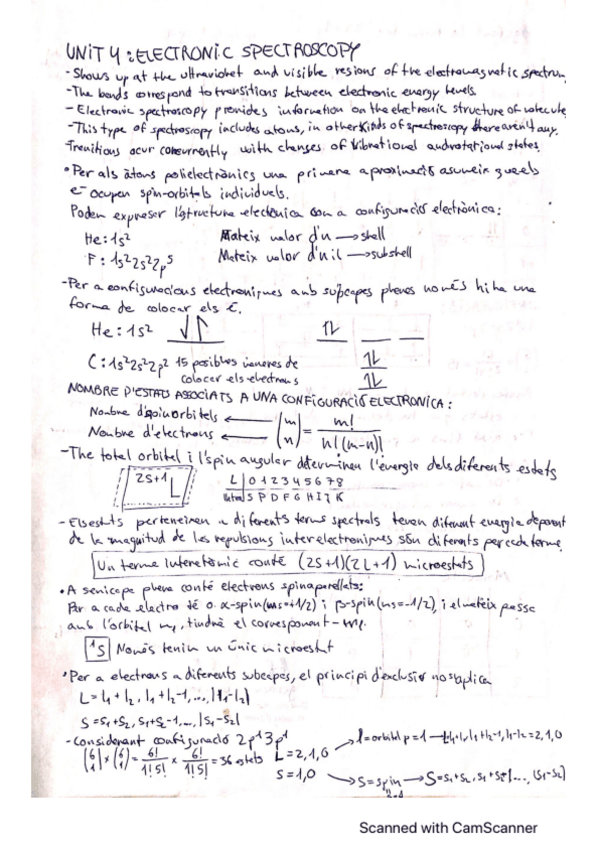 UNIT 4: ELECTRONIC SPECTROSCOPY
- Shows up at the ultraviolet and visible regions of the electromagnetic spectrum.
- The bands correspond to transitions between electronic energy levels.
- Electronic spectroscopy provides information on the electronic structure of molecule
- This type of spectroscopy includes atoms, in other kinds of spectroscopy there aren't any.
Transitions ocur concurrently with changes of vibrational and rotational states.
• Per als àtoms polielectrònics una primera aproximació asumeix que els
e⁻ ocupen spin-orbitals individuals.
Podem expresar l'estructura electrònica com a configuració electrònica:
He: 1s² Mateix valor d'n → shell
F: 1s²2s²2p⁵ Mateix valor d'n i l → subshell
- Per a configuracions electròniques amb subcapes plenes només hi ha una
forma de colocar els e⁻.
He: 1s²
C: 1s²2s²2p² 15 posibles maneres de
colocar els electrons
NOMBRE D'ESTATS ASSOCIATS A UNA CONFIGURACIÓ ELECTRONICA:
Nombre d'spinorbitals ← (m
Nombre d'electrons ← n) = m! / n!(m-n)!
- The total orbital i l'spin angular determinen l'energia dels diferents estats
2S+1 L
L | 0 1 2 3 4 5 6 7 8
S P D F G H I J K
- Els estats perteneixen a diferents terms spectrals tenen diferent energia
de la magnitud de les repulsions interelectroniques són diferents per cada terme.
Un terme conté (2S+1)(2L+1) microestats
• A plena conté electrons spin aparellats:
Per a cada electro té α-spin (ms=+1/2) i β-spin (ms=-1/2), i el mateix passa
amb l'orbital ml, tindrà el corresponent -ml.
¹S Només tenim un únic microestat
• Per a electrons a diferents subcapes, el principi d'exclusió no s'aplica
L = l₁+l₂, l₁+l₂-1, ..., |l₁-l₂|
S = s₁+s₂, s₁+s₂-1, ..., |s₁-s₂|
- Considerant configuració 2p¹3p¹
(6 1) × (6 1) = 6!/1!5! × 6!/1!5! = 36 estats L = 2,1,0 → l = orbital p = 1 → l₁+l₂, l₁+l₂-1, l₁-l₂ = 2,1,0
S = 1,0 → S = spin → S = s₁+s₂, ..., |s₁-s₂|
Scanned with CamScanner